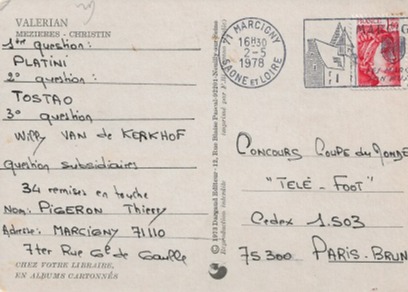 VALERIAN
MEZIERES - CHRISTIN
1ère question:
PLATINI
2° question:
TOSTAO
3° question
Willy VAN de KERKHOF
Question subsidiaire
34 remises en touche
Nom: PIGERON Thierry
Adresse: MARCIGNY 71110
7ter Rue Gl de Gaulle
CHEZ VOTRE LIBRAIRE,
EN ALBUMS CARTONNÉS
© 1973 Dargaud Editeur - 12, Rue Blaise Pascal - 92201 - Neuilly-sur-Seine
Reproduction interdite
71 MARCIGNY
16H30
2-5
1978
SAONE et LOIRE
CONCOURS COUPE du MONDE
"TELE - FOOT"
Cedex 1.503
75300 PARIS-BRUN